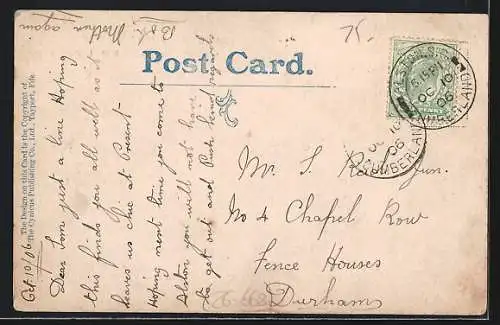 Post Card.
The Design on this Card is the Copyright of
The Cynicus Publishing Co., Ltd., Tayport, Fife
75.
ALSTON
5.15PM
OC 10
06
CUMBERLAND
OC 10
06
CUMBERLAND
Mr. S. Jun.
No 4 Chapel Row
Fence Houses
Durham
Oct 10/06
Dear Tom just a line Hoping
this finds you all well as it
leaves us here at Present
Hoping next time you come to
Alston you will not have
to get out and Push kind regards
Mother again